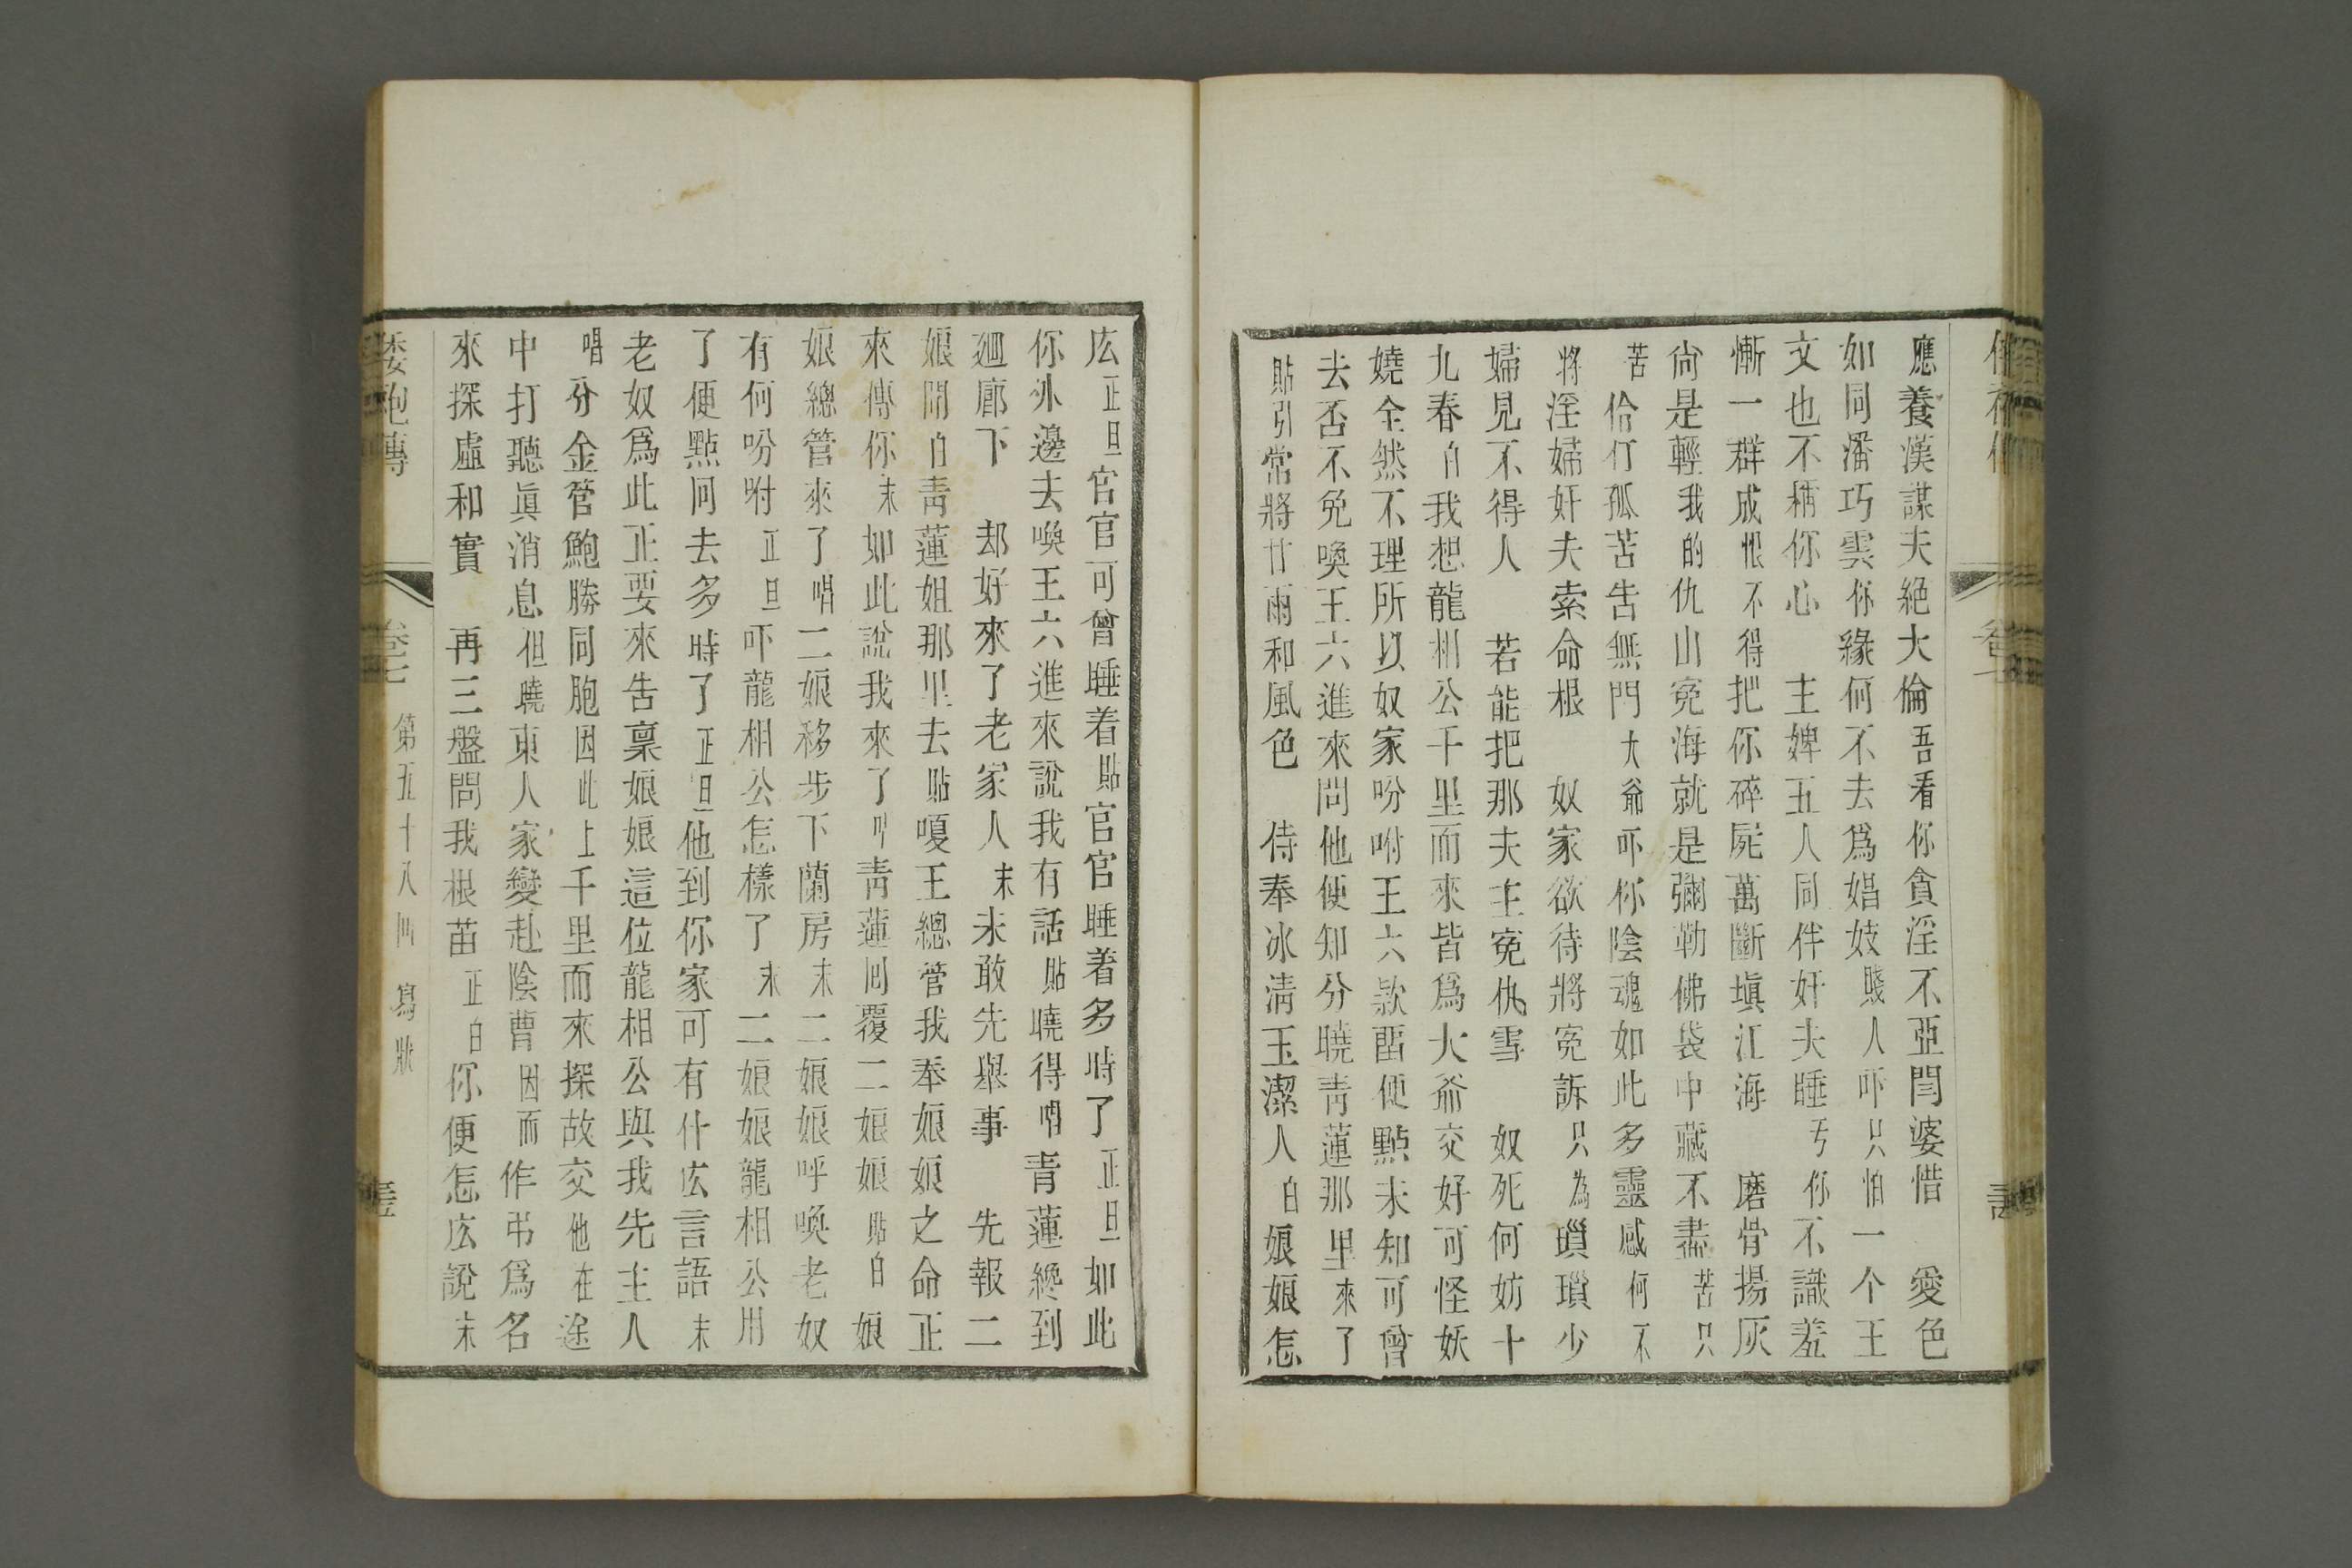 應養漢謀夫絕大倫吾看你貪淫不亞閆婆惜　愛色
如同潘巧雲你緣何不去爲娼妓賤人吓只怕一个王
文也不稱你心　主婢五人同伴奸夫睡丐你不識羞
慚一群成恨不得把你碎屍萬斷塡江海　磨骨揚灰
尙是輕我的仇山寃海就是彌勒佛袋中藏不盡苦只
苦伶仃孤苦告無門大爺吓你陰魂如此多靈感何不
將淫婦奸夫索命根　奴家欲待將寃訴只為瑣瑣少
婦見不得人　若能把那夫主寃仇雪　奴死何妨十
九春白我想龍相公千里而來皆爲大爺交好可怪妖
嬈全然不理所以奴家吩咐王六款畱便點未知可曾
去否不免喚王六進來問他便知分曉青蓮那里來了
貼引常將甘雨和風色　侍奉冰淸玉潔人白娘娘怎
庅正旦官官可曾睡着貼官官睡着多時了正旦如此
你外邊去喚王六進來說我有話貼曉得唱青蓮纔到
廻廊下　却好來了老家人末未敢先舉事　先報二
娘聞白靑蓮姐那里去貼嗄王總管我奉娘娘之命正
來傳你末如此說我來了叫靑蓮同覆二娘娘貼白娘
娘總管來了唱二娘移步下蘭房末二娘娘呼喚老奴
有何吩咐正旦吓龍相公怎樣了末二娘娘龍相公用
了便點囘去多時了正旦他到你家可有什庅言語末
老奴爲此正要來告稟娘娘這位龍相公與我先主人
唱分金管鮑勝同胞因此上千里而來探故交他在途
中打聽眞消息但曉東人家變赴陰曹因而作弔爲名
來探虛和實　再三盤問我根苗正白你便怎庅說末
倭袍傳　卷七　第五十八囘　寫狀